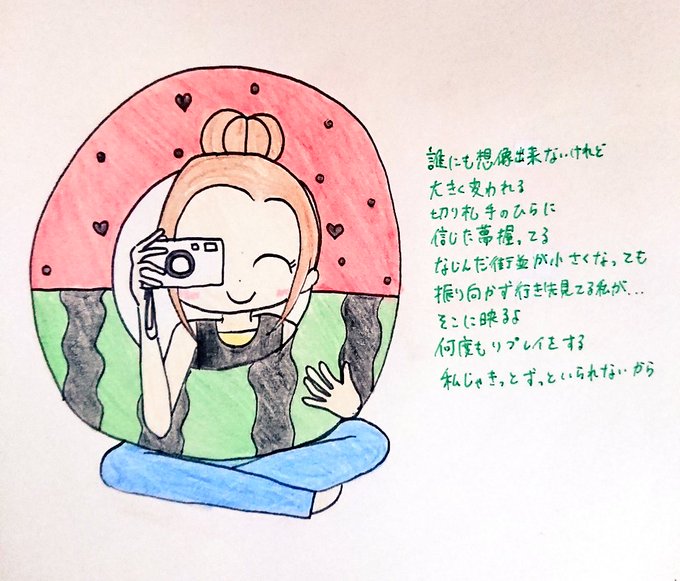 誰にも想像出来ないけれど
大きく変われる
切り札手のひらに
信じた夢握ってる
なじんだ街並が小さくなっても
振り向かず行き先見てる私が...
そこに映るよ
何度もリプレイをする
私じゃきっとずっといられないから